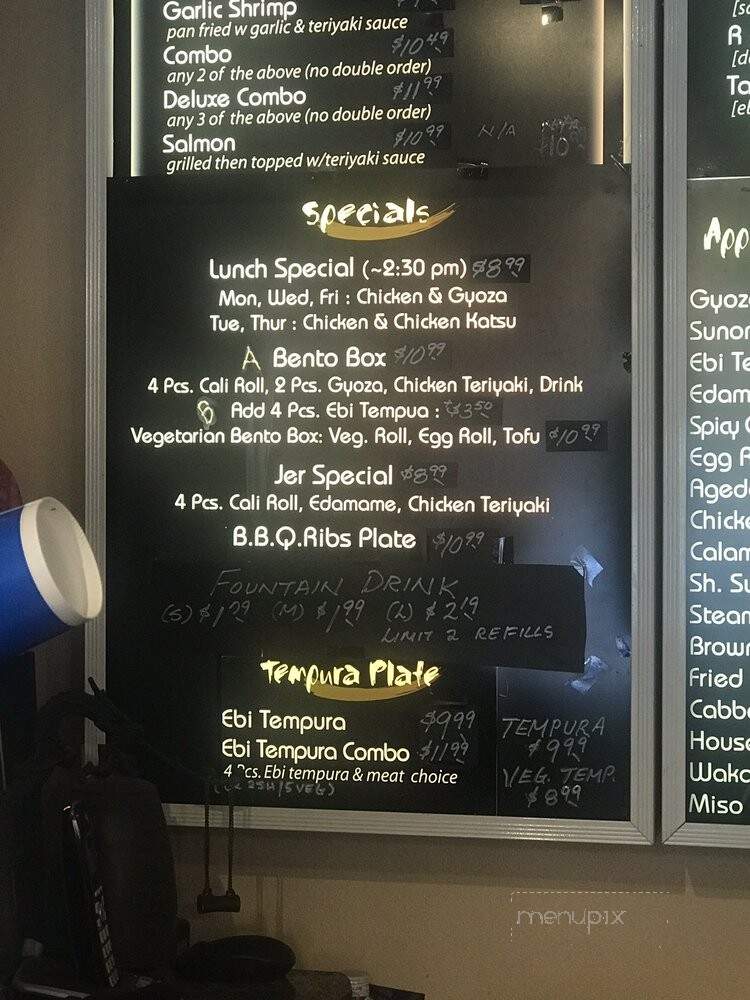 Garlic Shrimp
pan fried w garlic & teriyaki sauce
Combo $10.49
any 2 of the above (no double order)
Deluxe Combo $11.99
any 3 of the above (no double order)
Salmon $10.99 N/A
grilled then topped w/teriyaki sauce
Specials
Lunch Special (~2:30 pm) $8.99
Mon, Wed, Fri : Chicken & Gyoza
Tue, Thur : Chicken & Chicken Katsu
A Bento Box $10.99
4 Pcs. Cali Roll, 2 Pcs. Gyoza, Chicken Teriyaki, Drink
B Add 4 Pcs. Ebi Tempua : $3.50
Vegetarian Bento Box: Veg. Roll, Egg Roll, Tofu $10.99
Jer Special $8.99
4 Pcs. Cali Roll, Edamame, Chicken Teriyaki
B.B.Q.Ribs Plate $10.99
FOUNTAIN DRINK
(S) $1.79 (M) $1.99 (L) $2.19
LIMIT 2 REFILLS
Tempura Plate
Ebi Tempura $9.99
Ebi Tempura Combo $11.99
4 Pcs. Ebi tempura & meat choice
TEMPURA
$9.99
VEG. TEMP.
$8.99
App
Gyoza
Sunor
Ebi Te
Edam
Spicy
Egg R
Aged
Chick
Calam
Sh. Su
Stean
Brown
Fried
Cabb
House
Waka
Miso
menupix